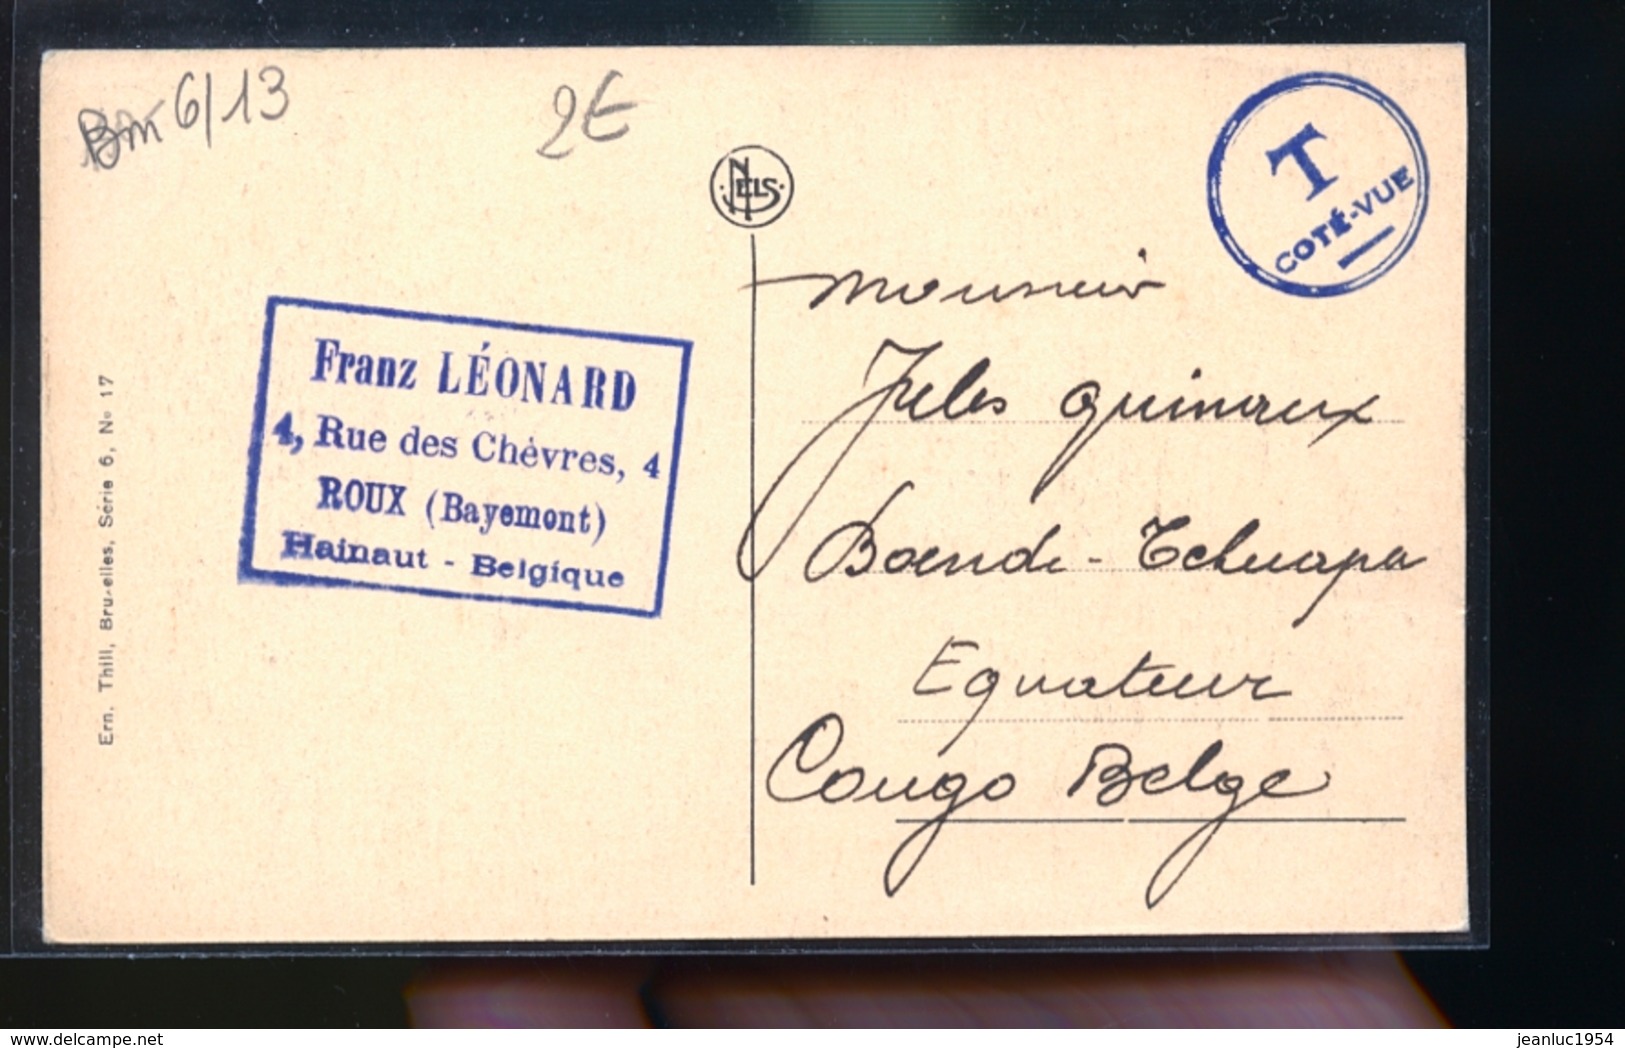 Bm 6/13
2€
NELS
T
COTÉ-VUE
Monsieur
Jules Quinaux
Boende-Tshuapa
Equateur
Congo Belge
Franz LÉONARD
4, Rue des Chèvres, 4
ROUX (Bayemont)
Hainaut - Belgique
Ern. Thill, Bruxelles, Série 6, No 17
jeanluc1954